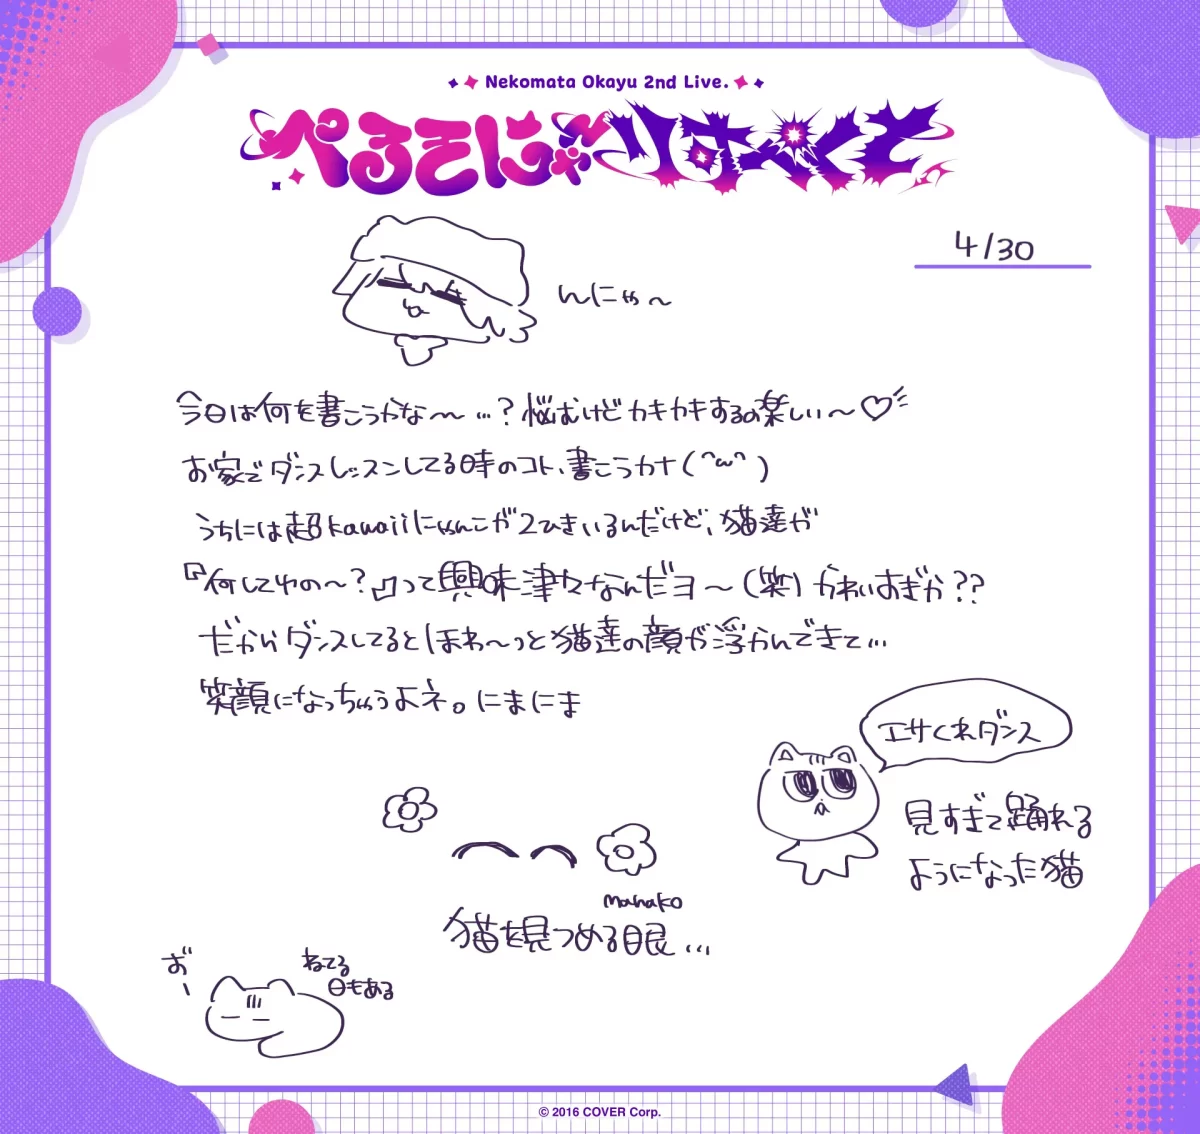 Nekomata Okayu 2nd Live.
ぺるそにゃ～りすぺくと
4/30
んにゃ～
今日は何を書こうかな～…?悩むけどカキカキするの楽しい～♡
お家でダンスレッスンしてる時のコト、書こうカナ(^ω^)
うちには超kawaiiにゃんこが2ひきいるんだけど、猫達が
『何してゆの～?』って興味津々なんだヨ～(笑)かわいすぎか??
だからダンスしてるとほわ～っと猫達の顔が浮かんできて…
笑顔になっちゃうよネ。にまにま
エサくれダンス
見すぎて踊れる
ようになった猫
manako
猫を見つめる眼…
お゛ー
ねてる
日もある
© 2016 COVER Corp.